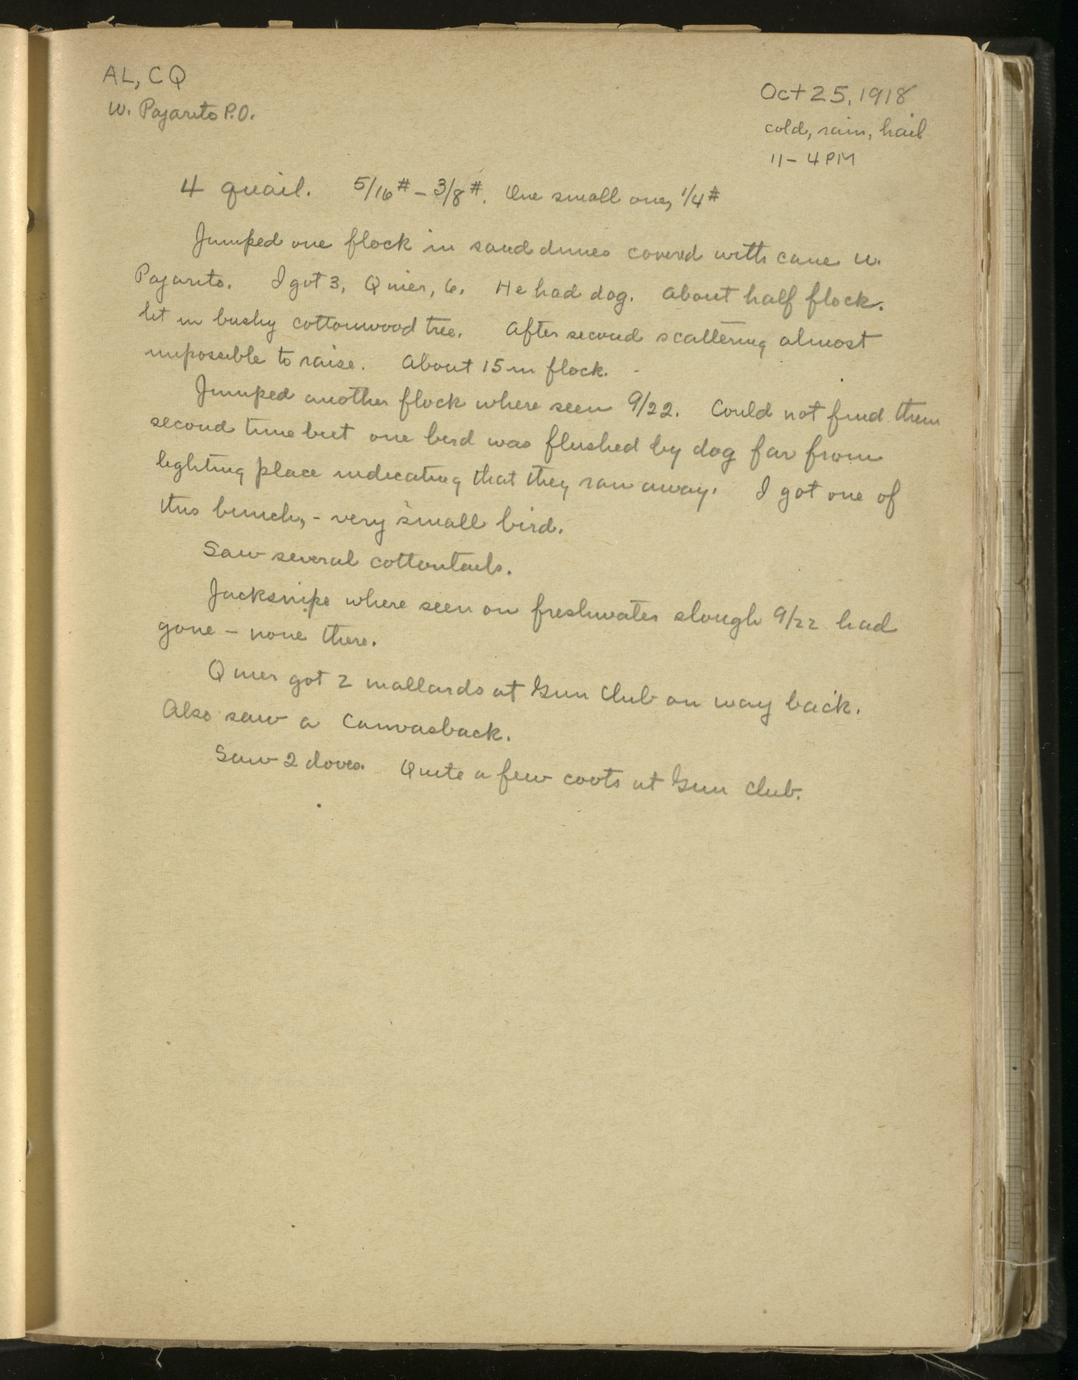 AL, CQ
W. Pajarito P.O.
Oct 25, 1918
cold, rain, hail
11 - 4 PM
4 quail. 5/16# - 3/8#. One small one, 1/4#
Jumped one flock in sand dunes covered with cane W.
Pajarito. I got 3, Quier, 6. He had dog. About half flock
lit in bushy cottonwood tree. After second scattering almost
impossible to raise. About 15 in flock.
Jumped another flock where seen 9/22. Could not find them
second time but one bird was flushed by dog far from
lighting place indicating that they ran away. I got one of
this bunch, - very small bird.
Saw several cottontails.
Jacksnipe where seen on freshwater slough 9/22 had
gone - none there.
Quier got 2 mallards at Gun Club on way back.
Also saw a Canvasback.
Saw 2 doves. Quite a few coots at Gun Club.